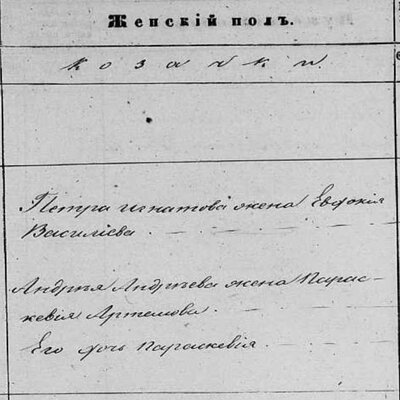 Женскій полъ.
козачки.
Петра Игнатова жена Евфокія
Василіева.
Андрѣя Андрѣева жена Парас-
кевія Артемова.
Его дочь Параскевія.